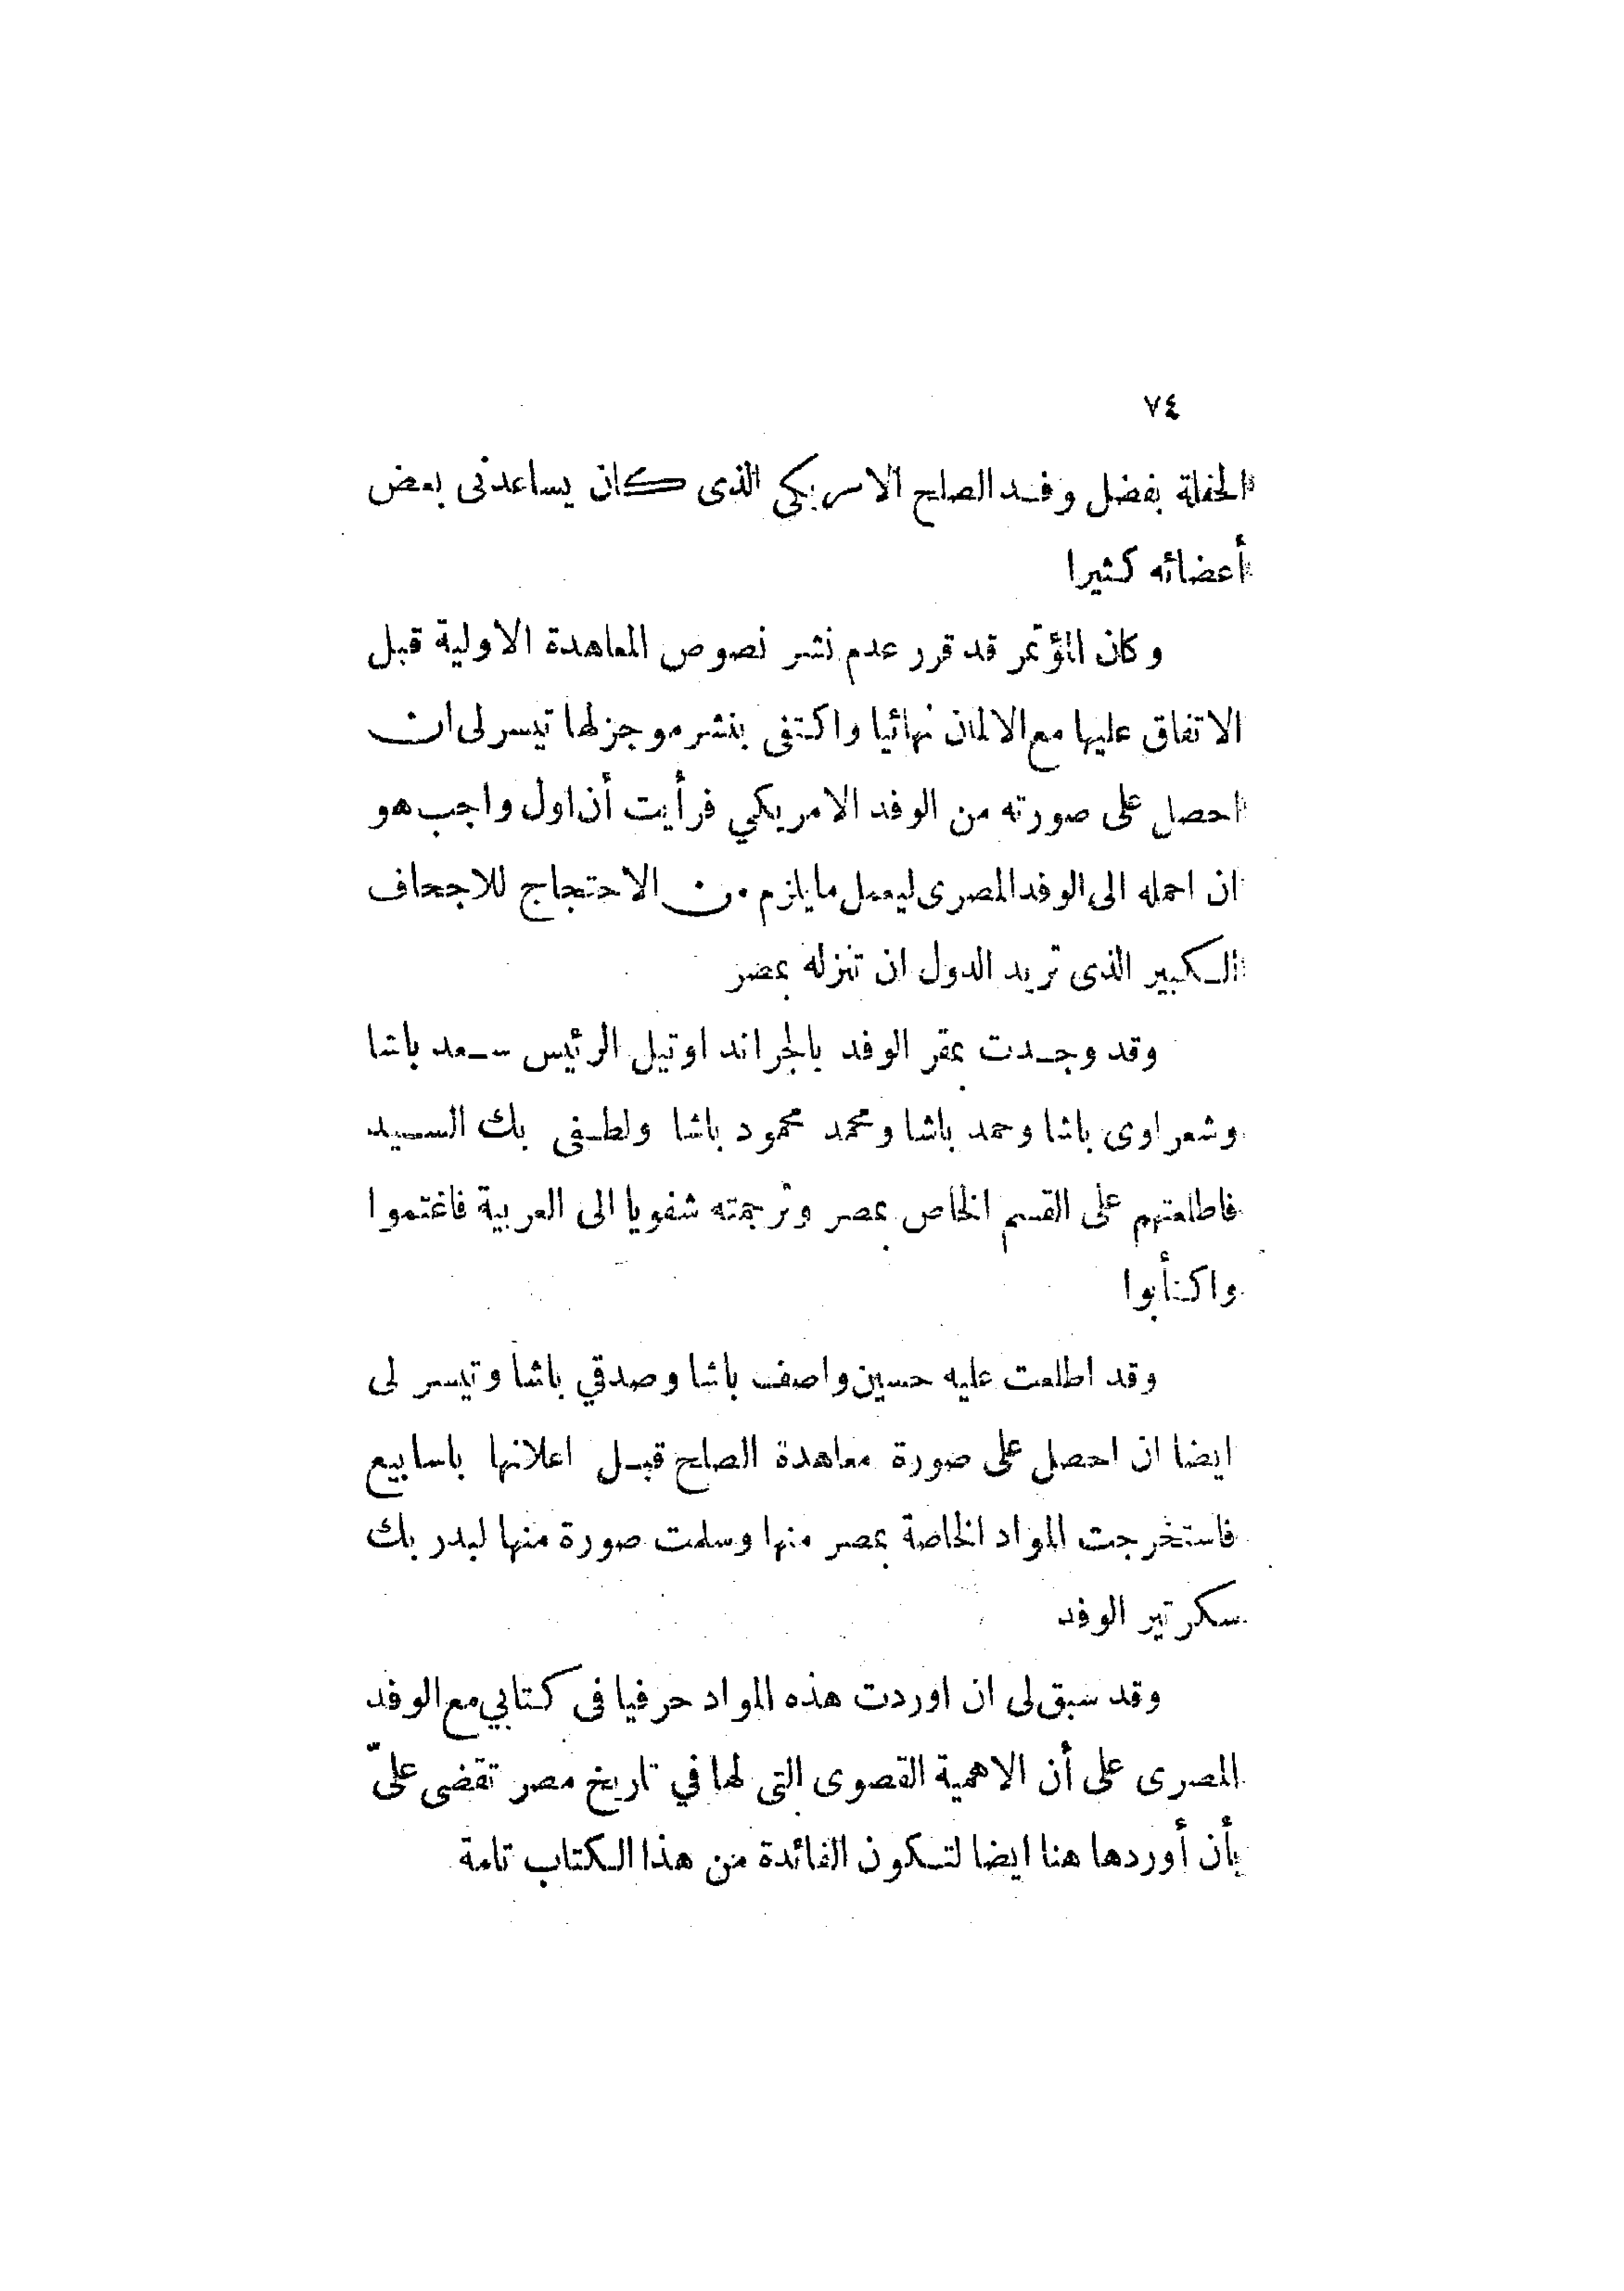 ٧٤
الحفلة بفضل وفد الصلح الامريكي الذى كان يساعدنى بعض
أعضائه كثيرا
وكان المؤتمر قد قرر عدم نشر نصوص المعاهدة الاولية قبل
الاتفاق عليها مع الالمان نهائيا واكتفى بنشر موجز لها تيسر لى ان
احصل على صورته من الوفد الامريكي فرأيت أن اول واجب هو
ان احمله الى الوفد المصرى ليعمل ما يلزم من الاحتجاج للاجحاف
الكبير الذى تريد الدول ان تنزله بمصر
وقد وجدت بمقر الوفد بالجراند اوتيل الرئيس سعد باشا
وشعراوى باشا وحمد باشا ومحمد محمود باشا ولطفى بك السيد
فاطلعتهم على القسم الخاص بمصر وترجمته شفويا الى العربية فاغتموا
واكتأبوا
وقد اطلعت عليه حسين واصف باشا وصدقي باشا وتيسر لى
ايضا ان احصل على صورة معاهدة الصلح قبل اعلانها باسابيع
فاستخرجت المواد الخاصة بمصر منها وسلمت صورة منها لبدر بك
سكرتير الوفد
وقد سبق لى ان اوردت هذه المواد حرفيا فى كتابي مع الوفد
المصرى على أن الاهمية القصوى التى لها في تاريخ مصر تقضى علىّ
بأن أوردها هنا ايضا لتكون الفائدة من هذا الكتاب تامة